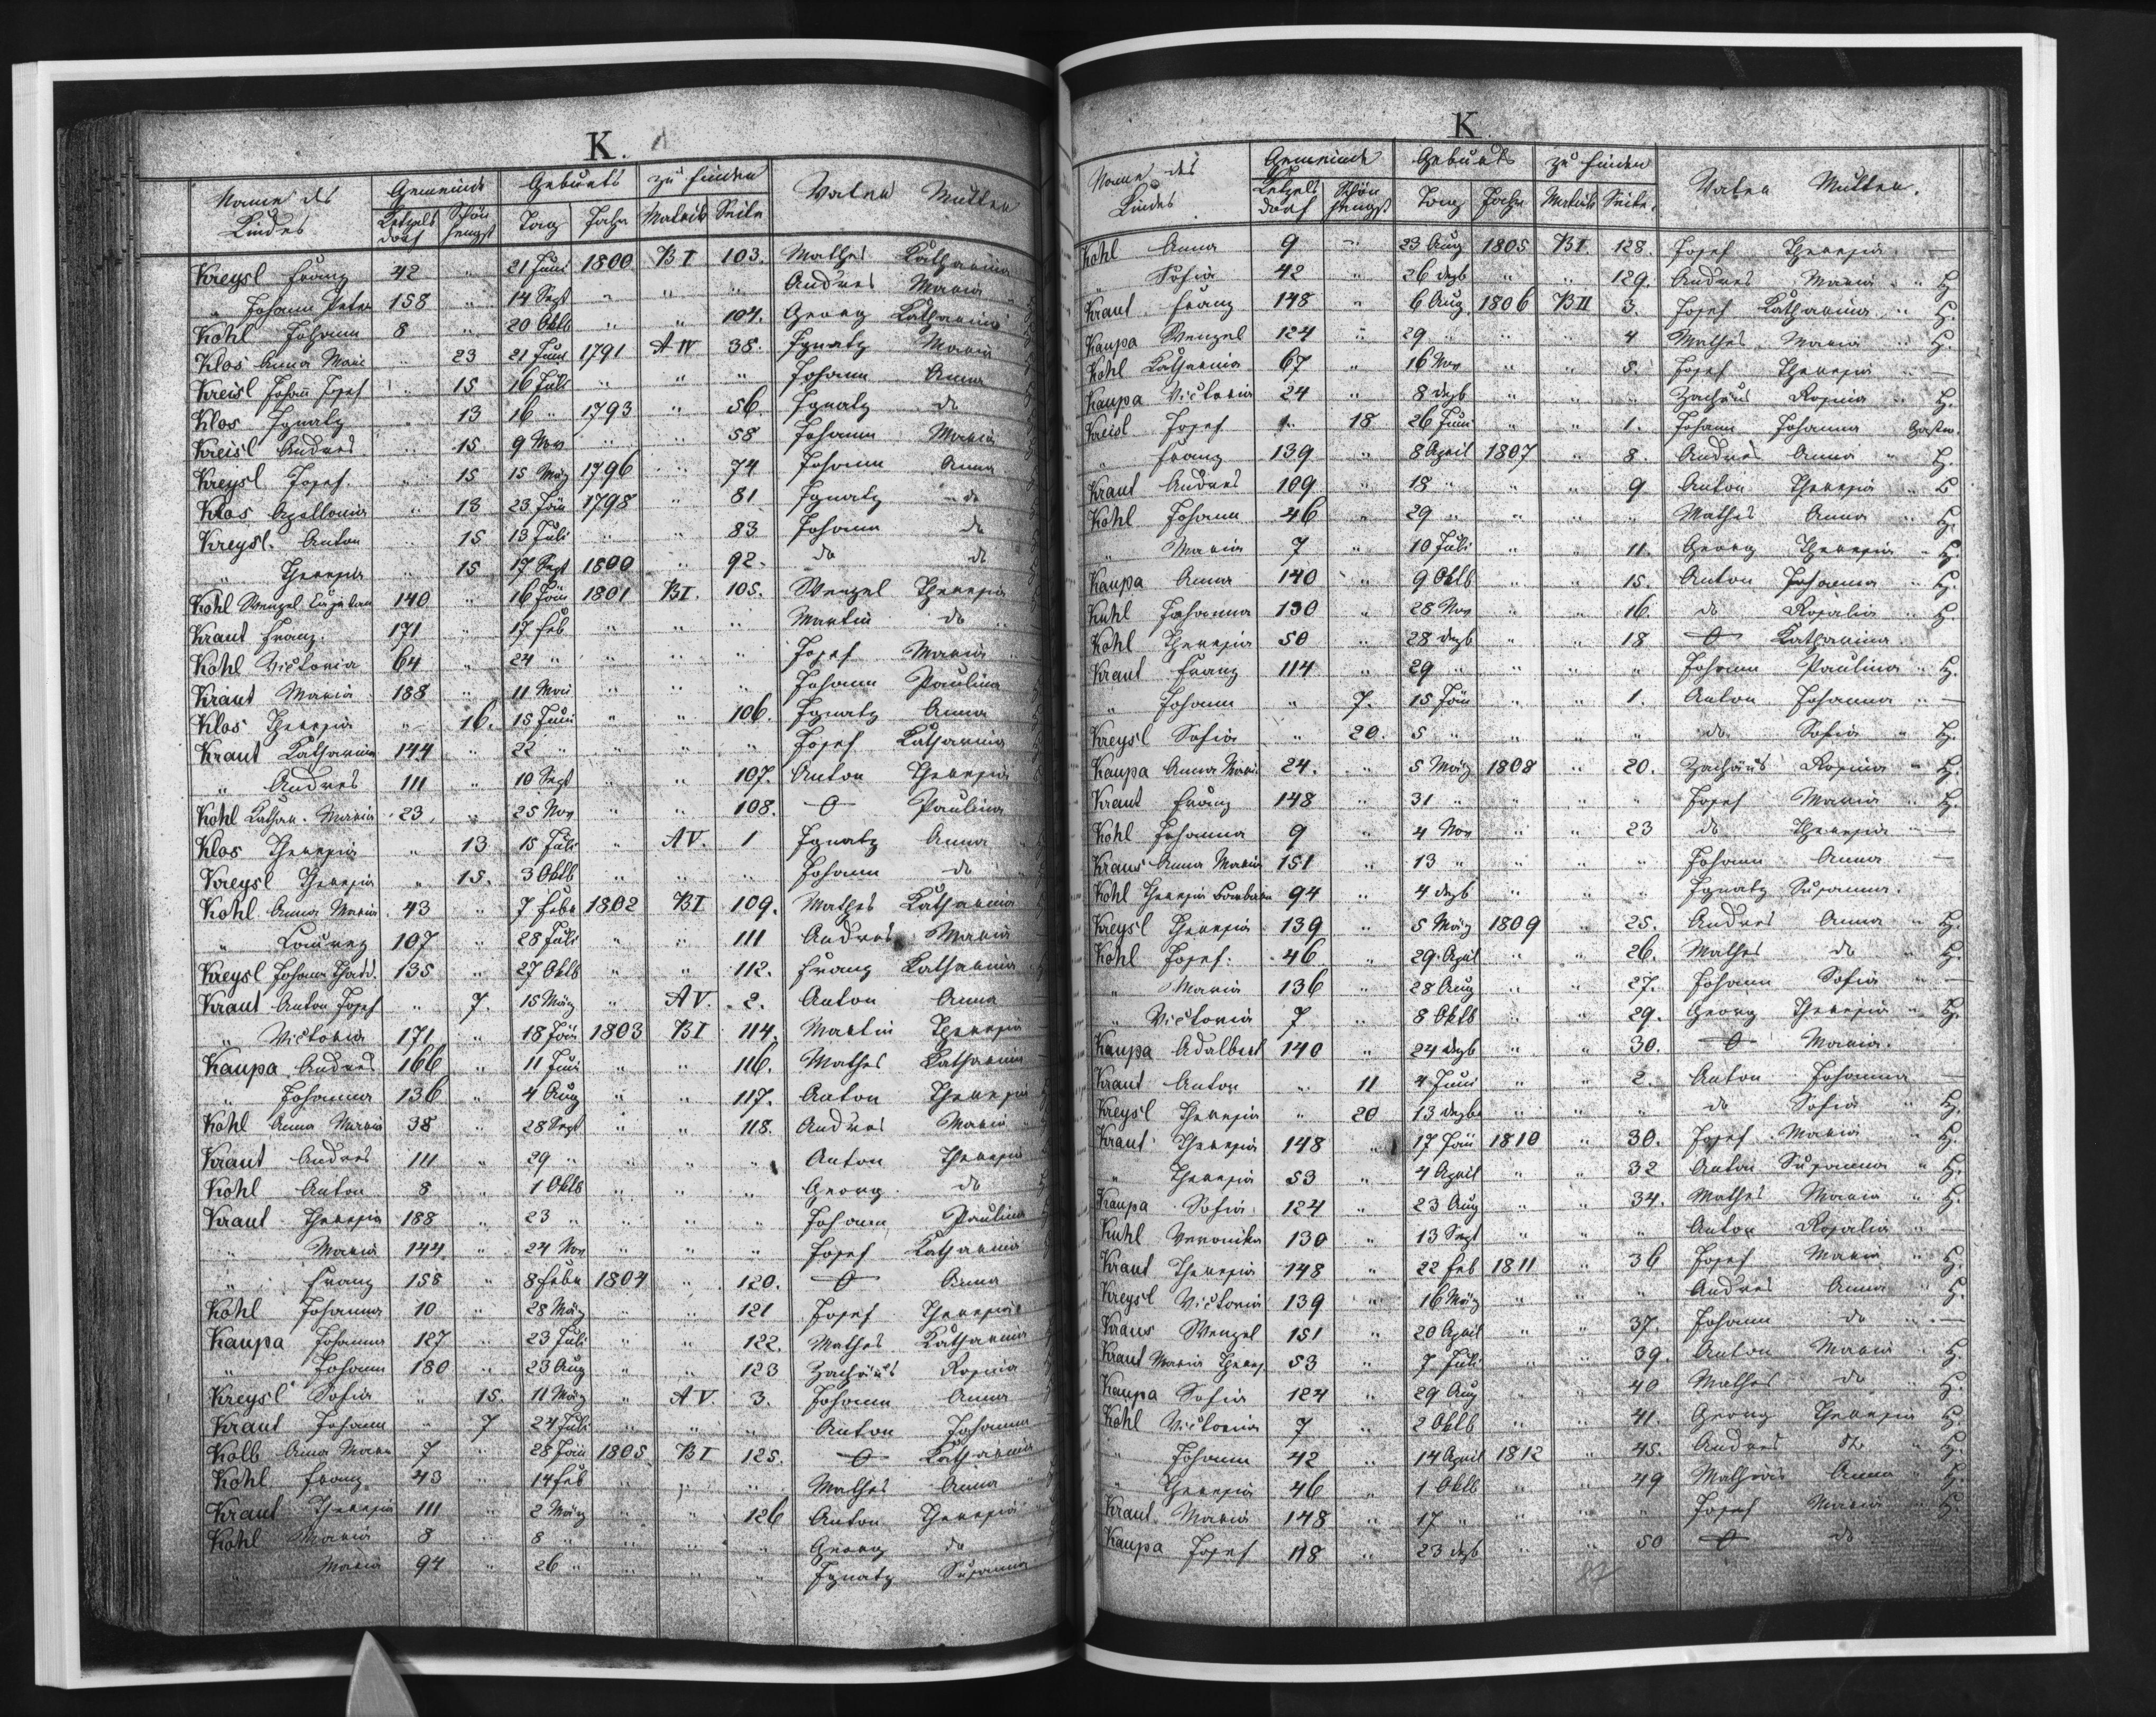 K.
Name des Kindes Gemeinde Geburts zu finden Vater Mutter
Ketzels dorf Schön hengst Tag Jahr Matrik Seite
Kreysl Franz 42 " 21 Juni 1800 B I 103. Mathes Katharina
" Johann Peter 158 " 14 Sept " " " Andres Maria
Kohl Johann 8 " 20 Oktb " " 104. Georg Katharina
Klos Anna Marie " 23 21 Juni 1791 A IV 38. Ignatz Maria
Kreisl Johann Josef " 15 16 Juli " " " Johann Anna
Klos Ignatz " 13 16 " 1793 " 56 Ignatz do
Kreisl Andres " 15 9 Nov " " 58 Johann Maria
Kreysl Josef " 15 15 März 1796 " 74 Johann Anna
Klos Apollonia " 13 23 Jän 1798 " 81 Ignatz do
Kreysl Anton " 15 13 Juli " " 83 Johann do
" Theresia " 15 17 Sept 1800 " 92. do do
Kohl Wenzel Cajetan 140 " 16 Jän 1801 B I. 105. Wenzel Theresia
Kraut Franz 171 " 17 Feb " " " Martin do
Kohl Victoria 64 " 24 " " " " Josef Maria
Kraut Maria 188 " 11 Mai " " " Johann Paulina
Klos Theresia " 16. 15 Juni " " 106. Ignatz Anna
Kraut Katharina 144 " 22 " " " " Josef Katharina
" Andres 111 " 10 Sept " " 107. Anton Theresia
Kohl Kathar. Maria 23 " 25 Nov " " 108. O Paulina
Klos Theresia " 13 15 Juli " A V. 1 Ignatz Anna
Kreysl Theresia " 15. 3 Oktb " " " Johann do
Kohl Anna Maria 43 " 7 Febr 1802 B I 109. Mathes Katharina
" Lorenz 107 " 28 Juli " " 111 Andres Maria
Kreysl Johann Thadd. 135 " 27 Oktb " " 112. Franz Katharina
Kraut Anton Josef " 7. 15 März " A V. 2. Anton Anna
" Victoria 171 " 18 Jän 1803 B I 114. Martin Theresia
Kaupa Andres 166 " 11 Juni " " 116. Mathes Katharina
" Johanna 136 " 4 Aug " " 117. Anton Theresia
Kohl Anna Maria 38 " 28 Sept " " 118. Andres Maria
Kraut Andres 111 " 29 " " " " Anton Theresia
Kohl Anton 8 " 1 Oktb " " " Georg do
Kraut Theresia 188 " 23 " " " " Johann Paulina
" Maria 144 " 24 Nov " " " Josef Katharina
" Franz 158 " 8 Febr 1804 " 120. O Anna
Kohl Johanna 10 " 28 März " " 121 Josef Theresia
Kaupa Johanna 127 " 23 Juli " " 122. Mathes Katharina
" Johann 180 " 23 Aug " " 123 Zachäus Rosina
Kreysl Sofia " 15. 11 März " A V. 3. Johann Anna
Kraut Johann " 7 24 Juli " " " Anton Johanna
Kolb Anna Maria 7 " 28 Jän 1805 B I 125. O Katharina
Kohl Franz 43 " 14 Feb " " " Mathes Anna
Kraut Theresia 111 " 2 März " " 126 Anton Theresia
Kohl Maria 8 " 8 " " " " Georg do
" Maria 94 " 26 " " " " Ignatz Susanna
K.
Name des Kindes Gemeinde Geburts zu finden Vater Mutter.
Ketzels dorf Schön hengst Tag Jahr Matrik Seite.
Kohl Anna 9 " 23 Aug 1805 B I. 128. Josef Theresia —
" Sofia 42 " 26 dezb " " 129. Andres Maria " H
Kraut Franz 148 " 6 Aug 1806 B II 3. Josef Katharina " H.
Kaupa Wenzel 124 " 29 " " " 4 Mathes Maria " H.
Kohl Katharina 67 " 16 Nov " " 5. Josef Theresia " —
Kaupa Victoria 24 " 8 dezb " " " Zachäus Rosina " H.
Kreisl Josef " 18 26 Juni " " 1. Johann Johanna
" Franz 139 " 8 April 1807 " 8. Andres Anna " H.
Kraut Andres 109 " 18 " " " 9 Anton Theresia "
Kohl Johann 46 " 29 " " " " Mathes Anna " H.
" Maria 7 " 10 Juli " " 11. Georg Theresia " H
Kaupa Anna 140 " 9 Oktb " " 15. Anton Johanna " H.
Kuhl Johanna 130 " 28 Nov " " 16. do Rosalia " H.
Kohl Theresia 50 " 28 dezb " " 18 O Katharina.
Kraut Franz 114 " 29 " " " " Johann Paulina " H.
" Johann " 7. 15 Jän " " 1. Anton Johanna " —
Kreysl Sofia " 20. 5 " " " " do Sofia " H.
Kaupa Anna Maria 24. " 5 März 1808 " 20. Zachäus Rosina " H.
Kraut Franz 148 " 31 " " " " Josef Maria " H.
Kohl Johanna 9 " 4 Nov " " 23 do Theresia " —
Kraus Anna Maria 151 " 13 " " " " Johann Anna —
Kohl Theresia Barbara 94 " 4 dezb " " " Ignatz Susanna.
Kreysl Theresia 139 " 5 März 1809 " 25. Andres Anna " H.
Kohl Josef 46 " 29 April " " 26. Mathes do " H.
" Maria 136 " 28 Aug " " 27. Johann Sofia " —
" Victoria 7 " 8 Oktb " " 29. Georg Theresia " H.
Kaupa Adalbert 140 " 24 dezb " " 30. O Maria.
Kraut Anton " 11 4 Juni " " 2. Anton Johanna —
Kreysl Theresia " 20 13 dezb " " " do Sofia " H.
Kraut Theresia 148 " 17 Jän 1810 " 30. Josef Maria " H.
" Theresia 53 " 4 April " " 32 Anton Susanna " H.
Kaupa Sofia 124 " 23 Aug " " 34. Mathes Maria " H.
Kuhl Veronika 130 " 13 Sept " " " Anton Rosalia " —
Kraut Theresia 148 " 22 Feb 1811 " 36 Josef Maria " H.
Kreysl Victoria 139 " 16 März " " " Andres Anna " H.
Kraus Wenzel 151 " 20 April " " 37. Johann do " —
Kraut Maria Theres. 53 " 7 Juli " " 39. Anton Maria " H.
Kaupa Sofia 124 " 29 Aug " " 40 Mathes do " H.
Kohl Victoria 7 " 2 Oktb " " 41. Georg Theresia H.
" Johann 42 " 14 April 1812 " 45. Andres " H.
" Theresia 46 " 1 Oktb " " 49 Mathias Anna " H.
Kraut Maria 148 " 17 " " " " Josef Maria " H.
Kaupa Josef 118 " 23 dezb " " 50 O do